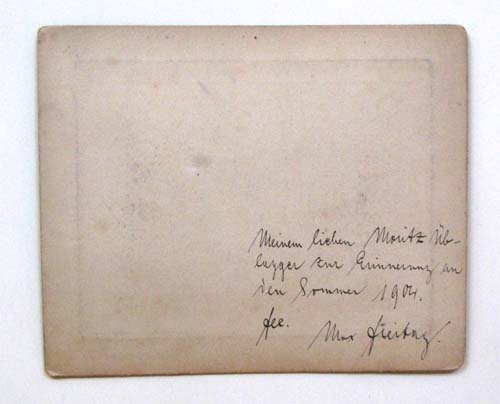 Meinem lieben Moritz Üb-
lagger zur Erinnerung an
den Sommer 1904.
Max Freitag.